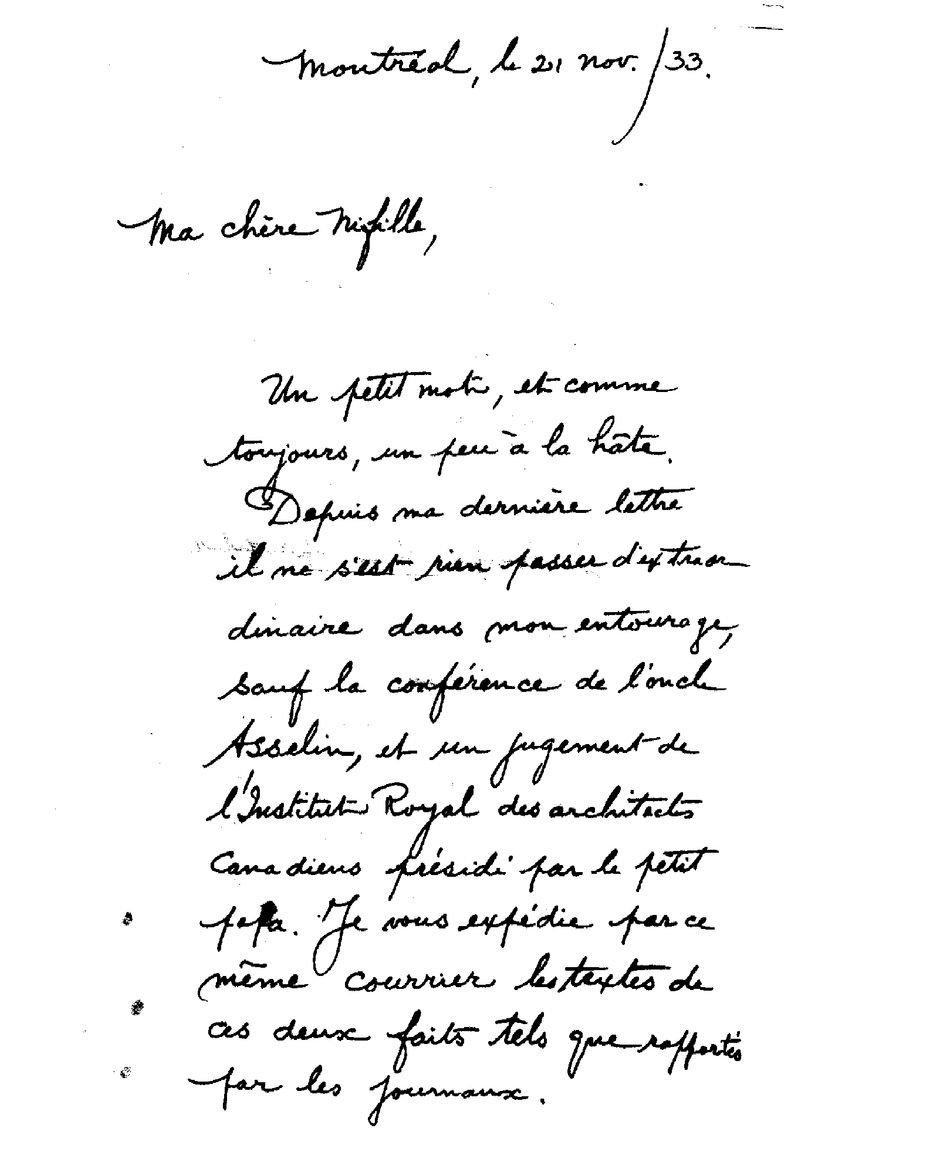 Montréal, le 21 nov. / 33.
Ma chère Nifille,
Un petit mot, et comme
toujours, un peu à la hâte.
Depuis ma dernière lettre
il ne s'est rien passer d'extraor
dinaire dans mon entourage,
sauf la conférence de l'oncle
Asselin, et un jugement de
l'Institut Royal des architectes
Canadiens présidé par le petit
papa. Je vous expédie par ce
même courrier les textes de
ces deux faits tels que rapportés
par les journaux.